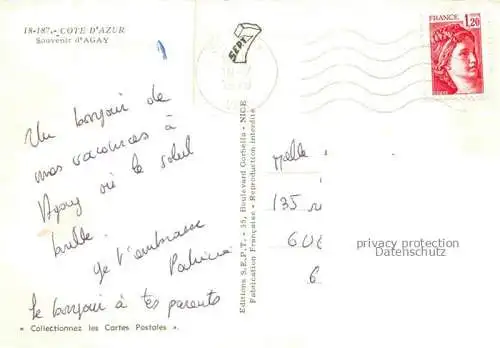 18-187. - COTE D'AZUR
Souvenir d'AGAY
Un bonjour de
mes vacances à
Agay où le soleil
brille.
Je t'embrasse
Patricia
Le bonjour à tes parents
« Collectionnez les Cartes Postales ».
Editions S.E.P.T. - 35, Boulevard Gorbella - NICE
Fabrication Française - Reproduction interdite
SEPT
FRANCE
1,20
Melle
135
606
6
privacy protection
Datenschutz